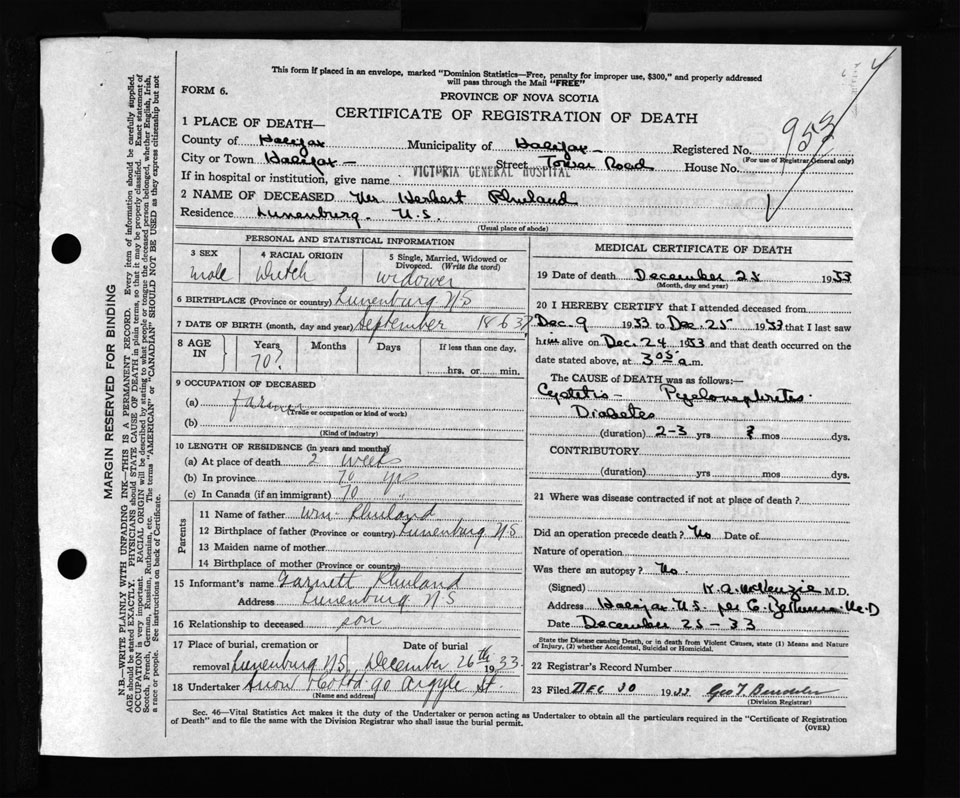 This form if placed in an envelope, marked "Dominion Statistics—Free, penalty for improper use, $300," and properly addressed
will pass through the Mail "FREE"
FORM 6.
PROVINCE OF NOVA SCOTIA
CERTIFICATE OF REGISTRATION OF DEATH
953
1 PLACE OF DEATH—
County of Halifax Municipality of Halifax Registered No.
(For use of Registrar General only)
City or Town Halifax Street Tower Road House No.
If in hospital or institution, give name VICTORIA GENERAL HOSPITAL
2 NAME OF DECEASED Mr. Herbert Rhuland
Residence Lunenburg. N.S.
(Usual place of abode)
PERSONAL AND STATISTICAL INFORMATION
3 SEX 4 RACIAL ORIGIN 5 Single, Married, Widowed or
Divorced. (Write the word)
male Dutch widower
6 BIRTHPLACE (Province or country) Lunenburg N S
7 DATE OF BIRTH (month, day and year) September 1863?
8 AGE IN Years Months Days If less than one day,
70?
hrs. or min.
9 OCCUPATION OF DECEASED
(a) farmer
(Trade or occupation or kind of work)
(b)
(Kind of industry)
10 LENGTH OF RESIDENCE (in years and months)
(a) At place of death 2 weeks
(b) In province 70 yrs
(c) In Canada (if an immigrant) 70 "
Parents
11 Name of father Wm. Rhuland
12 Birthplace of father (Province or country) Lunenburg N S
13 Maiden name of mother
14 Birthplace of mother (Province or country)
15 Informant's name Garnett Rhuland
Address Lunenburg N S
16 Relationship to deceased son
17 Place of burial, cremation or Date of burial
removal Lunenburg N.S. December 26th 1933.
18 Undertaker Snow & Co Ltd. 90 Argyle St.
(Name and address)
MEDICAL CERTIFICATE OF DEATH
19 Date of death December 25 1933
(Month, day and year)
20 I HEREBY CERTIFY that I attended deceased from
Dec. 9 1933 to Dec. 25 1933 that I last saw
him alive on Dec. 24 1933 and that death occurred on the
date stated above, at 3 05 a.m.
The CAUSE of DEATH was as follows:—
Cystitis – Pyelonephritis
Diabetes
(duration) 2-3 yrs ? mos dys.
CONTRIBUTORY
(duration) yrs mos dys.
21 Where was disease contracted if not at place of death?
Did an operation precede death? No Date of
Nature of operation
Was there an autopsy? No.
(Signed) McKenzie M.D.
Address Halifax N.S. per
Date December 25-33
State the Disease causing Death, or in death from Violent Causes, state (1) Means and Nature
of Injury, (2) whether Accidental, Suicidal or Homicidal.
22 Registrar's Record Number
23 Filed DEC 30 1933 Geo T.
(Division Registrar)
Sec. 46—Vital Statistics Act makes it the duty of the Undertaker or person acting as Undertaker to obtain all the particulars required in the "Certificate of Registration
of Death" and to file the same with the Division Registrar who shall issue the burial permit.
(OVER)
MARGIN RESERVED FOR BINDING
N.B.—WRITE PLAINLY WITH UNFADING INK—THIS IS A PERMANENT RECORD. Every item of information should be carefully supplied.
AGE should be stated EXACTLY. PHYSICIANS should STATE CAUSE OF DEATH in plain terms, so that it may be properly classified. Exact statement of
OCCUPATION is very important. RACIAL ORIGIN will be described by stating to what people or tongue the deceased person belonged, whether English, Irish,
Scotch, French, German, Russian, Ruthenian, etc. The terms "AMERICAN" or "CANADIAN" SHOULD NOT BE USED as they express citizenship but not
a race or people. See instructions on back of Certificate.